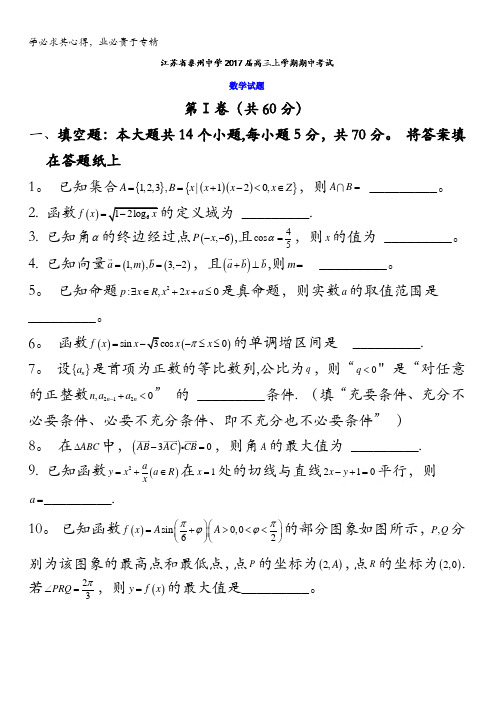 学必求其心得，业必贵于专精
江苏省泰州中学2017届高三上学期期中考试
数学试题
第Ⅰ卷（共60分）
一、填空题：本大题共14个小题,每小题5分，共70分。 将答案填
在答题纸上
1。 已知集合A={1,2,3},B={x|(x+1)(x-2)<0,x∈Z}，则A∩B= ________。
2. 函数f(x)=√(1-2log₆x)的定义域为 ________.
3. 已知角α的终边经过点P(-x,-6),且cosα=4/5，则x的值为 ________。
4. 已知向量a=(1,m),b=(3,-2)，且(a+b)⊥b,则m= ________。
5。 已知命题p:∃x∈R,x²+2x+a≤0是真命题，则实数a的取值范围是
________。
6。 函数f(x)=sinx-√3cosx(-π≤x≤0)的单调增区间是 ________.
7。 设{aₙ}是首项为正数的等比数列,公比为q，则“q<0"是“对任意
的正整数n,a₂ₙ₋₁+a₂ₙ<0” 的 ________条件.（填“充要条件、充分不
必要条件、必要不充分条件、即不充分也不必要条件” ）
8。 在ΔABC中，(AB-3AC)•CB=0，则角A的最大值为 ________.
9. 已知函数y=x²+a/x(a∈R)在x=1处的切线与直线2x-y+1=0平行，则
a=________.
10。 已知函数f(x)=Asin(π/6+φ)(A>0,0<φ<π/2)的部分图象如图所示,P,Q分
别为该图象的最高点和最低点,点P的坐标为(2,A),点R的坐标为(2,0).
若∠PRQ=2π/3，则y=f(x)的最大值是________。